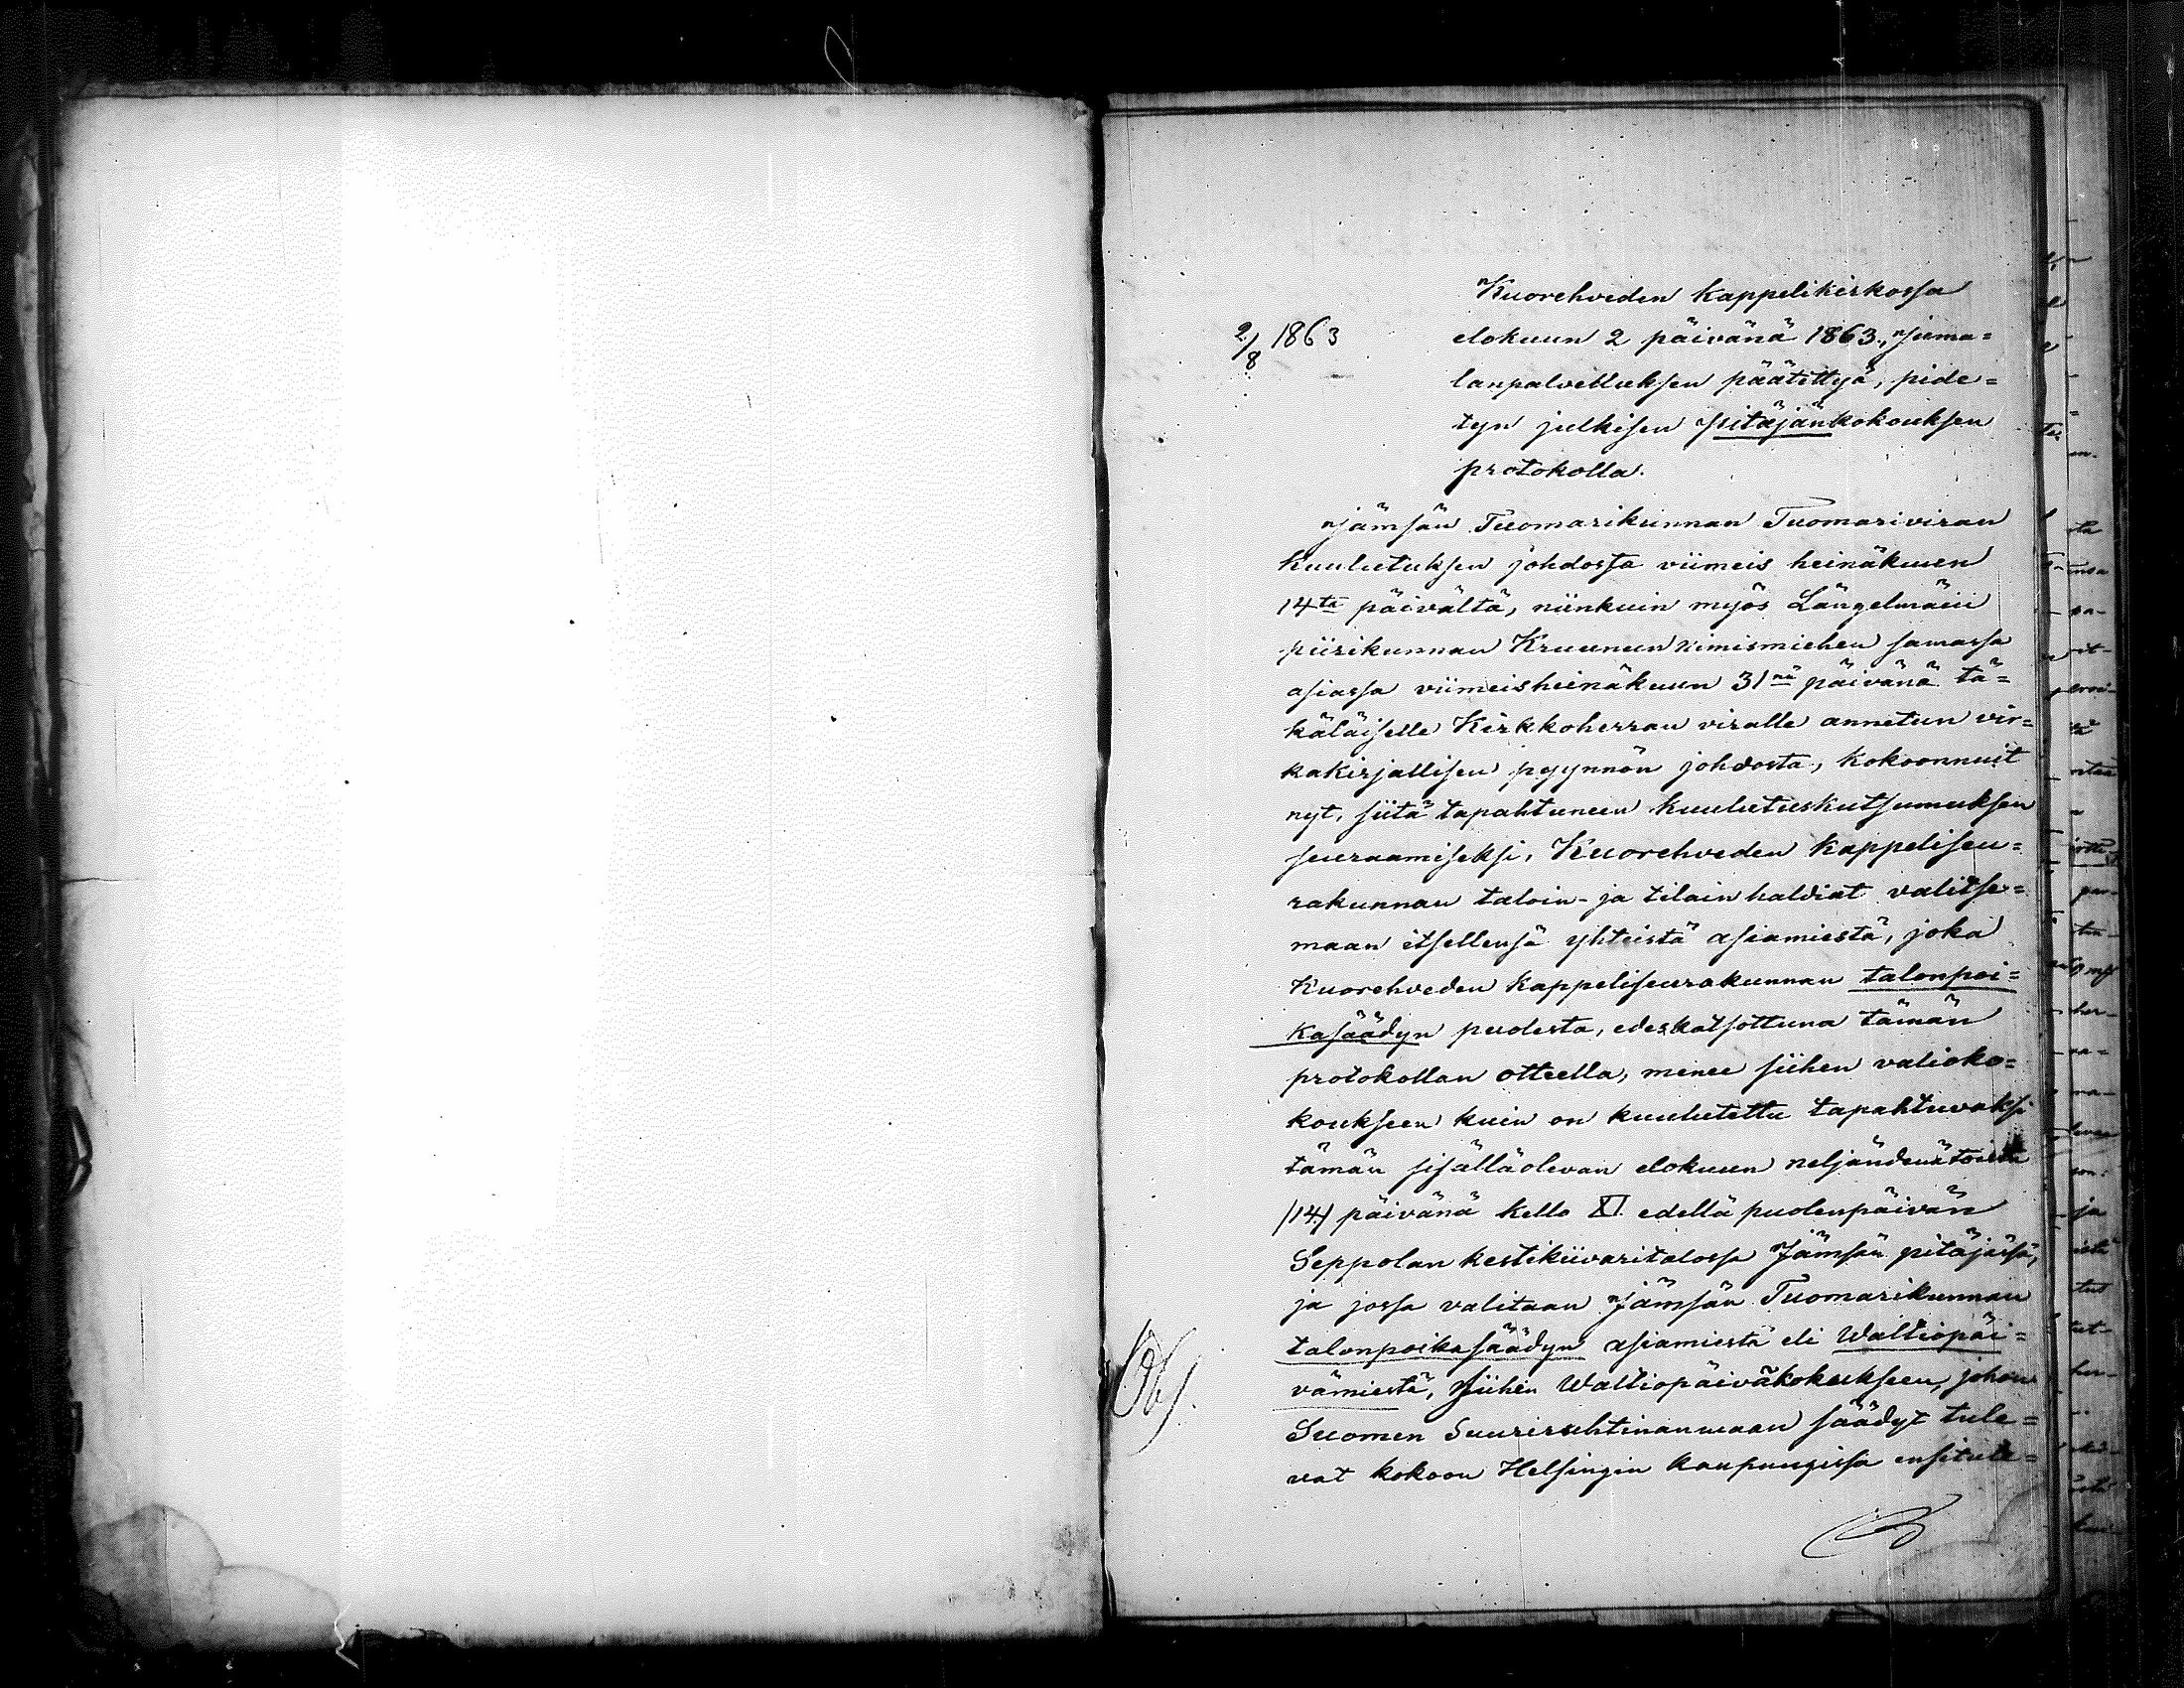 Kuorehveden kappelikirkossa
2/8 1863
elokuun 2 päivänä 1863, juma=
lanpalvelluksen päätettyä, pide=
tyn julkisen pitäjänkokouksen
protokolla.
Jämsän Tuomarikunnan Tuomariviran
kuulutuksen johdossa viimeis heinäkuun
14tä päivältä, niinkuin myös Längelmäen
piirikunnan Kruununnimismiehen samassa
asiassa viimeisheinäkuun 31nä päivänä tä=
käläiselle Kirkkoherran viralle annetun vir=
kakirjallisen pyynnön johdosta, kokoonnuit
nyt, siitä tapahtuneen kuulutuskutsumuksen
seuraamiseksi, Kuorehveden kappeliseu=
rakunnan taloin- ja tilain haldiat valitse=
maan itsellensä yhteistä asiamiestä, joka
Kuorehveden kappeliseurakunnan talonpoi=
kasäädyn puolesta, edeskatsottuna tämän
protokollan otteella, menee siihen valioko=
koukseen kuin on kuulutettu tapahtuvaksi
tämän sisälläolevan elokuun neljändenätoista
/14/ päivänä kello XI. edellä puolenpäivän
Seppolan kestikiivaritalossa Jämsän pitäjässä,
ja jossa valitaan Jämsän Tuomarikunnan
talonpoikasäädyn asiamiestä eli Waltiopäi=
vämiestä, siihen Waltiopäiväkokoukseen, johon
Suomen Suuriruhtinanmaan säädyt tule=
vat kokoon Helsingin kaupungissa ensitule=